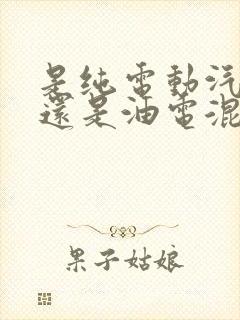 是純電動汽
還是油電混
果子姑娘